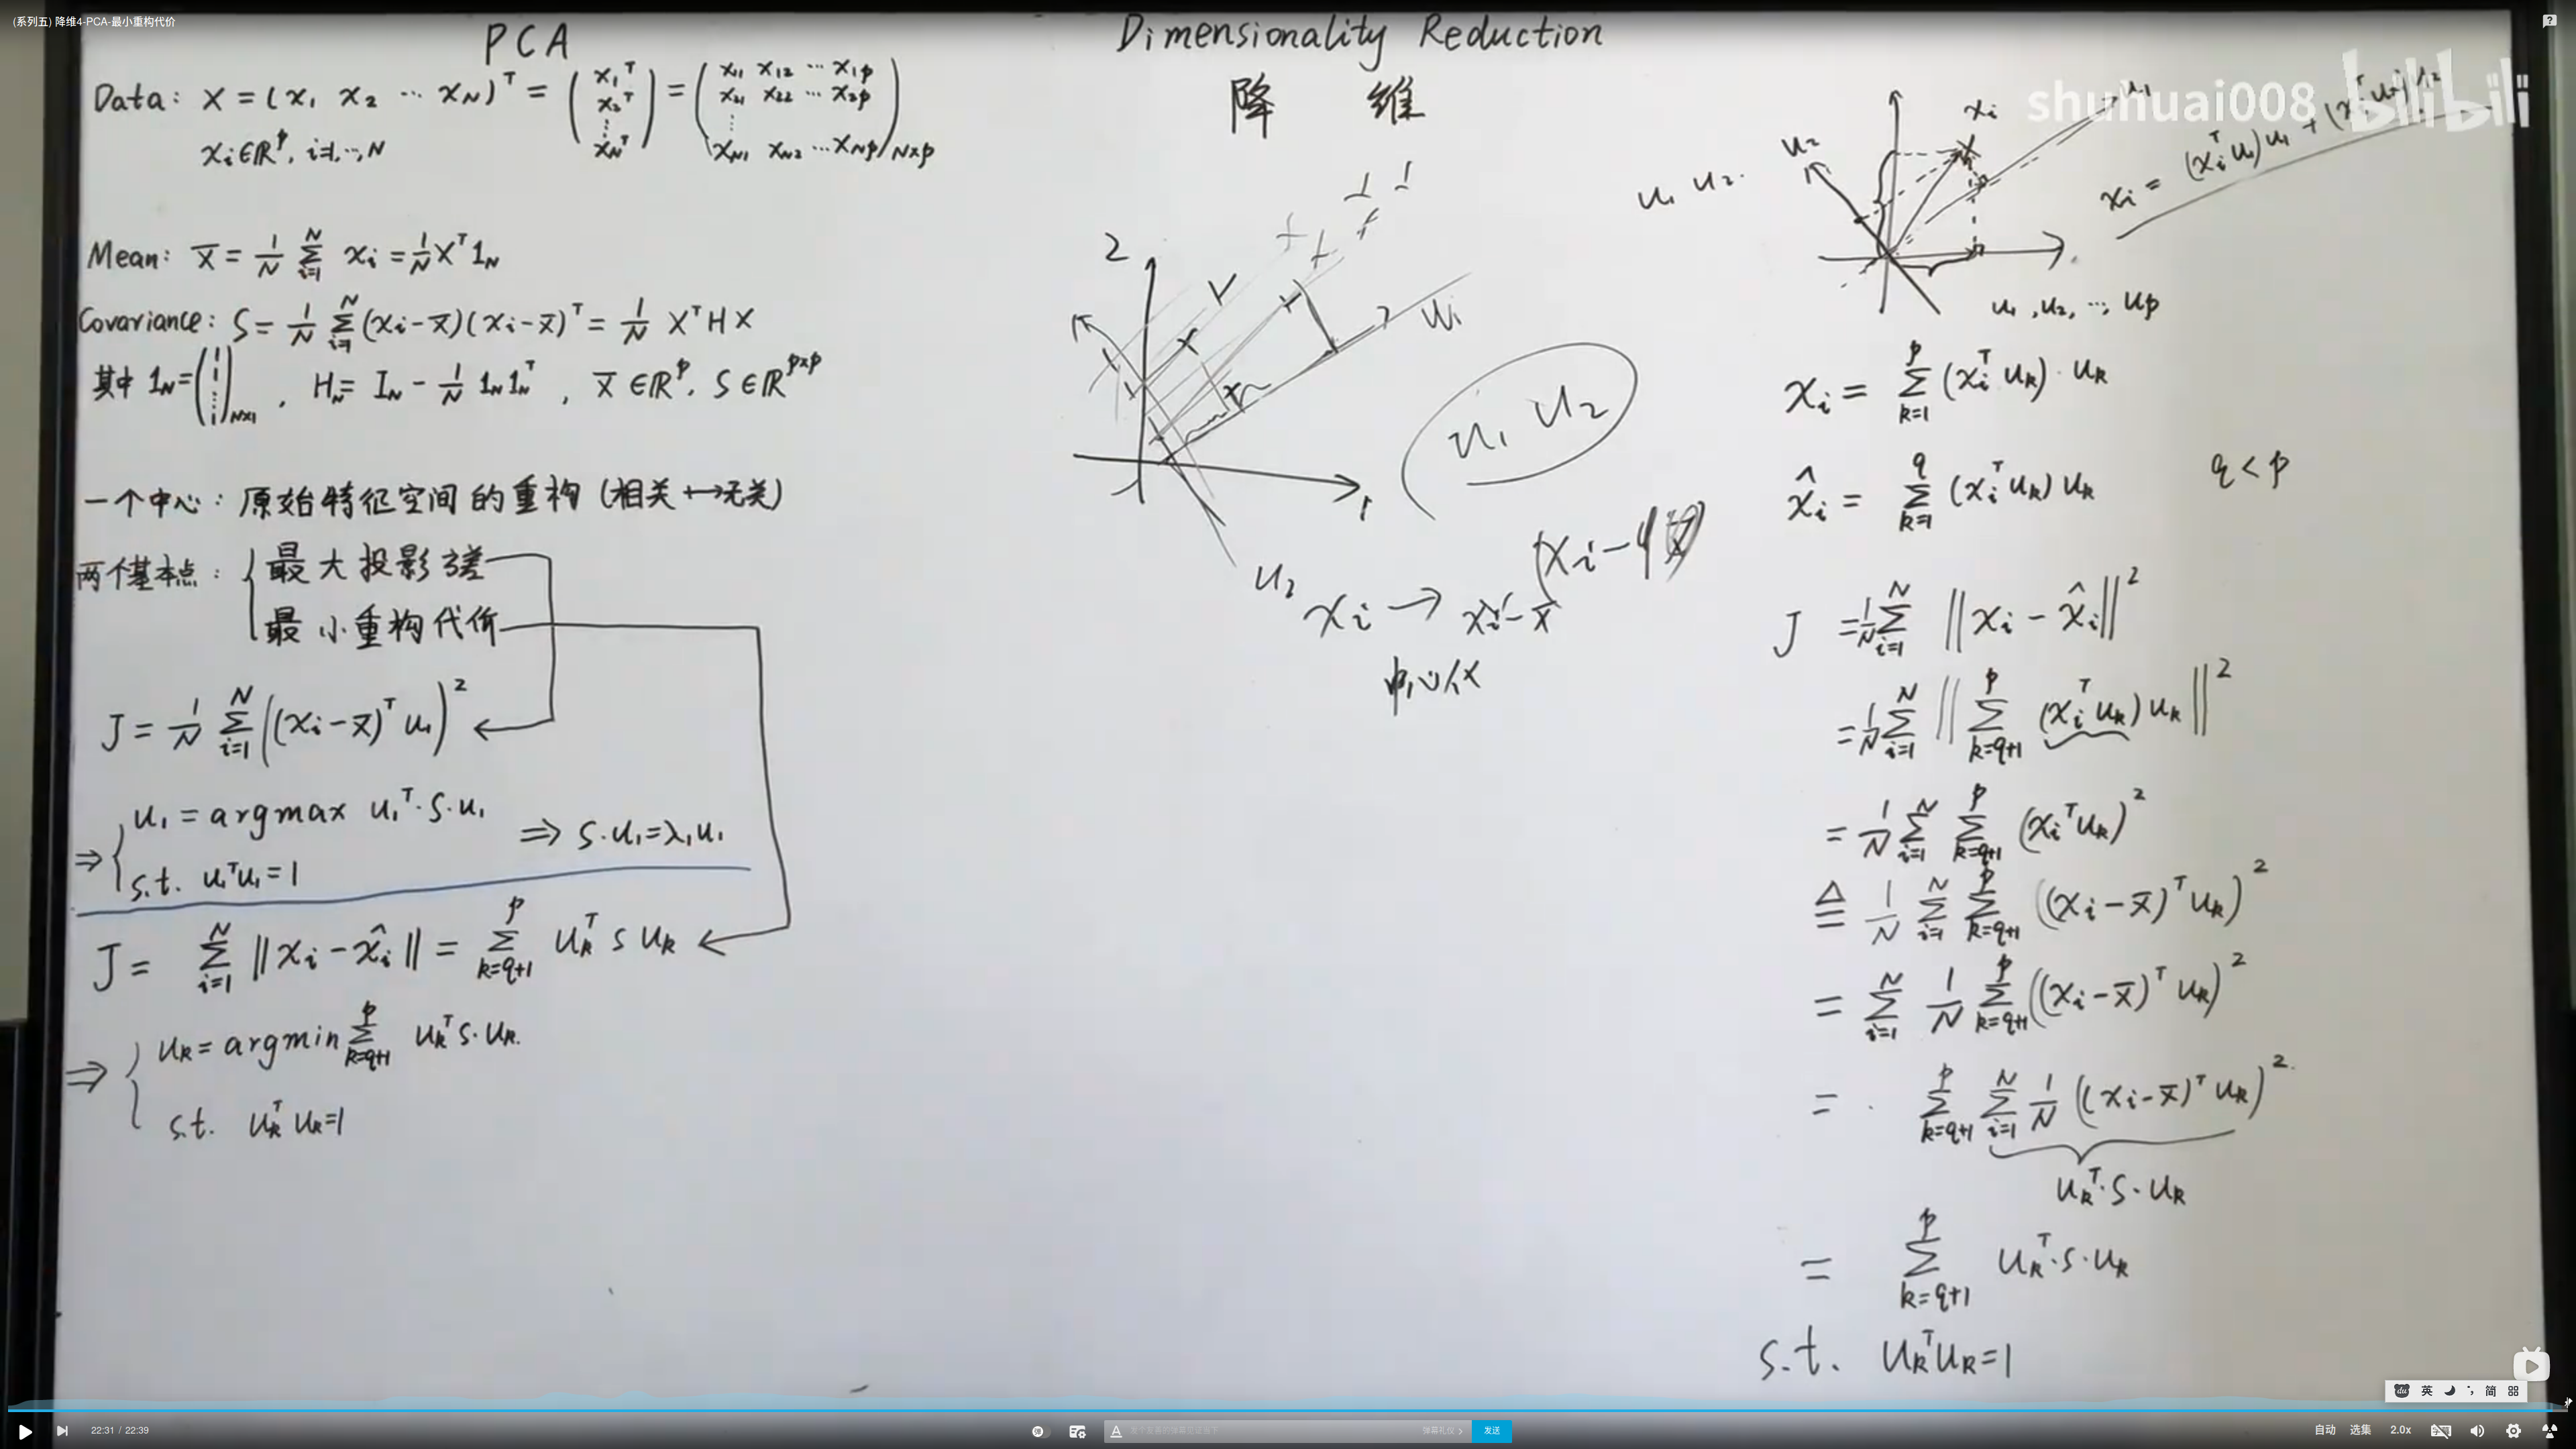 (系列五) 降维4-PCA-最小重构代价
PCA
Data: X = (x₁ x₂ ⋯ x_N)ᵀ = (x₁ᵀ x₂ᵀ ⋮ x_Nᵀ) = (x₁₁ x₁₂ ⋯ x₁p
x₂₁ x₂₂ ⋯ x₂p
⋮
x_N1 x_N2 ⋯ x_Np)_N×p
xᵢ∈ℝᵖ, i=1,⋯,N
Mean: x̄ = 1/N ∑_{i=1}^{N} xᵢ = 1/N Xᵀ1_N
Covariance: S = 1/N ∑_{i=1}^{N} (xᵢ-x̄)(xᵢ-x̄)ᵀ = 1/N XᵀHX
其中 1_N = (1 1 ⋮ 1)_N×1 , H_N = I_N - 1/N 1_N 1_Nᵀ , x̄∈ℝᵖ, S∈ℝ^{p×p}
一个中心: 原始特征空间的重构 (相关↔无关)
两个基本点: { 最大投影方差
最小重构代价
J = 1/N ∑_{i=1}^{N} ((xᵢ-x̄)ᵀ u₁)²
⇒ { u₁ = argmax u₁ᵀ·S·u₁
s.t. u₁ᵀu₁=1
⇒ S·u₁=λ₁u₁
J = ∑_{i=1}^{N} ‖xᵢ - x̂ᵢ‖ = ∑_{k=q+1}^{p} u_kᵀ S u_k
⇒ { u_k = argmin ∑_{k=q+1}^{p} u_kᵀ S·u_k.
s.t. u_kᵀ u_k=1
Dimensionality Reduction
降 维
2
1
u₁
u₂
u₁ u₂
xᵢ → xᵢ - x̄
中心化
shuhuai008 bilibili
u₁ u₂.
u₂
xᵢ
u₁
xᵢ = (xᵢᵀu₁)u₁ + (xᵢᵀu₂)u₂
u₁, u₂, ⋯, u_p
xᵢ = ∑_{k=1}^{p} (xᵢᵀ u_k)·u_k
x̂ᵢ = ∑_{k=1}^{q} (xᵢᵀ u_k) u_k q < p
J = 1/N ∑_{i=1}^{N} ‖xᵢ - x̂ᵢ‖²
= 1/N ∑_{i=1}^{N} ‖∑_{k=q+1}^{p} (xᵢᵀ u_k) u_k‖²
= 1/N ∑_{i=1}^{N} ∑_{k=q+1}^{p} (xᵢᵀu_k)²
≜ 1/N ∑_{i=1}^{N} ∑_{k=q+1}^{p} ((xᵢ-x̄)ᵀu_k)²
= ∑_{i=1}^{N} 1/N ∑_{k=q+1}^{p} ((xᵢ-x̄)ᵀ u_k)²
= ∑_{k=q+1}^{p} ∑_{i=1}^{N} 1/N ((xᵢ-x̄)ᵀ u_k)²
u_kᵀ·S·u_k
= ∑_{k=q+1}^{p} u_kᵀ·S·u_k
s.t. u_kᵀu_k=1
英 简
22:31 / 22:39
弹幕礼仪 >
发送
自动 选集 2.0x